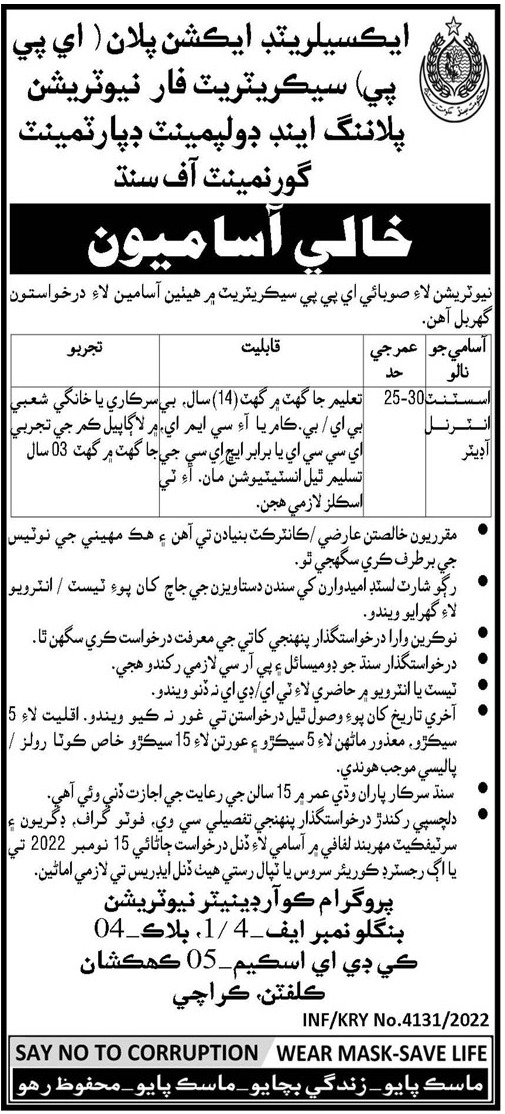 ايڪسيليريٽڊ ايڪشن پلان (اي پي
پي) سيڪريٽريٽ فار نيوٽريشن
پلاننگ اينڊ ڊولپمينٽ ڊپارٽمينٽ
گورنمينٽ آف سنڌ
خالي آساميون
نيوٽريشن لاءِ صوبائي اي پي پي سيڪريٽريٽ ۾ هيٺين آسامين لاءِ درخواستون
گهربل آهن.
آسامي جو نالو
عمر جي حد
قابليت
تجربو
اسسٽنٽ انٽرنل آڊيٽر
25-30
تعليم جا گهٽ ۾ گهٽ (14) سال، بي
اي/ بي.ڪام يا آءِ سي ايم اي،
اي سي سي اي يا برابر ايڇ اِي سي جي
تسليم ٿيل انسٽيٽيوشن مان. آءِ ٽي
اسڪلز لازمي هجن.
سرڪاري يا خانگي شعبي
۾ لاڳاپيل ڪم جي تجربي
جا گهٽ ۾ گهٽ 03 سال
● مقرريون خالصتن عارضي/ڪانٽرڪٽ بنيادن تي آهن ۽ هڪ مهيني جي نوٽيس
جي برطرف ڪري سگهجي ٿو.
● رڳو شارٽ لسٽڊ اميدوارن کي سندن دستاويزن جي جاچ کان پوءِ ٽيسٽ / انٽرويو
لاءِ گهرايو ويندو.
● نوڪرين وارا درخواستگذار پنهنجي کاتي جي معرفت درخواست ڪري سگهن ٿا.
● درخواستگذار سنڌ جو ڊوميسائل ۽ پي آر سي لازمي رکندو هجي.
● ٽيسٽ يا انٽرويو ۾ حاضري لاءِ ٽي اي/ڊي اي نه ڏنو ويندو.
● آخري تاريخ کان پوءِ وصول ٿيل درخواستن تي غور نه ڪيو ويندو. اقليت لاءِ 5
سيڪڙو، معذور ماڻهن لاءِ 5 سيڪڙو ۽ عورتن لاءِ 15 سيڪڙو خاص ڪوٽا رولز /
پاليسي موجب هوندي.
● سنڌ سرڪار پاران وڌي عمر ۾ 15 سالن جي رعايت جي اجازت ڏني وئي آهي.
● دلچسپي رکندڙ درخواستگذار پنهنجي تفصيلي سي وي، فوٽو گراف، ڊگريون ۽
سرٽيفڪيٽ مهربند لفافي ۾ آسامي لاءِ ڏنل درخواست ڄاڻائي 15 نومبر 2022 تي
يا اڳ رجسٽرڊ ڪوريئر سروس يا ٽپال رستي هيٺ ڏنل ايڊريس تي لازمي اماڻين.
پروگرام ڪوآرڊينيٽر نيوٽريشن
بنگلو نمبر ايف_1/4، بلاڪ_04
ڪي ڊي اي اسڪيم_05 ڪهڪشان
ڪلفٽن، ڪراچي
INF/KRY No.4131/2022
SAY NO TO CORRUPTION WEAR MASK-SAVE LIFE
ماسڪ پايو_زندگي بچايو_ماسڪ پايو_محفوظ رهو